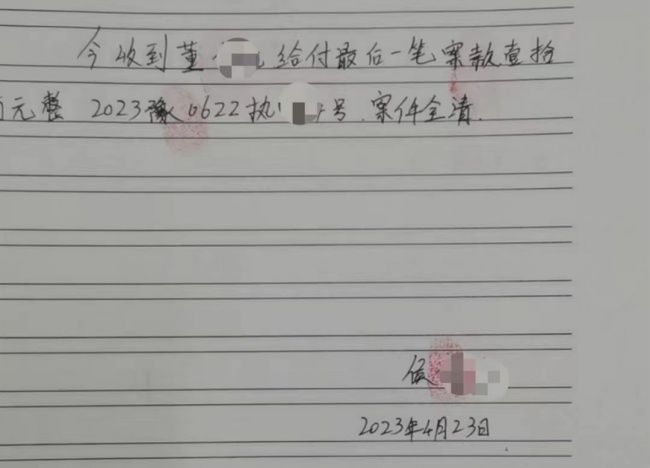 今收到董给付最后一笔案款壹拾
元整 2023豫0622执号.案件全清.
侯
2023年4月23日